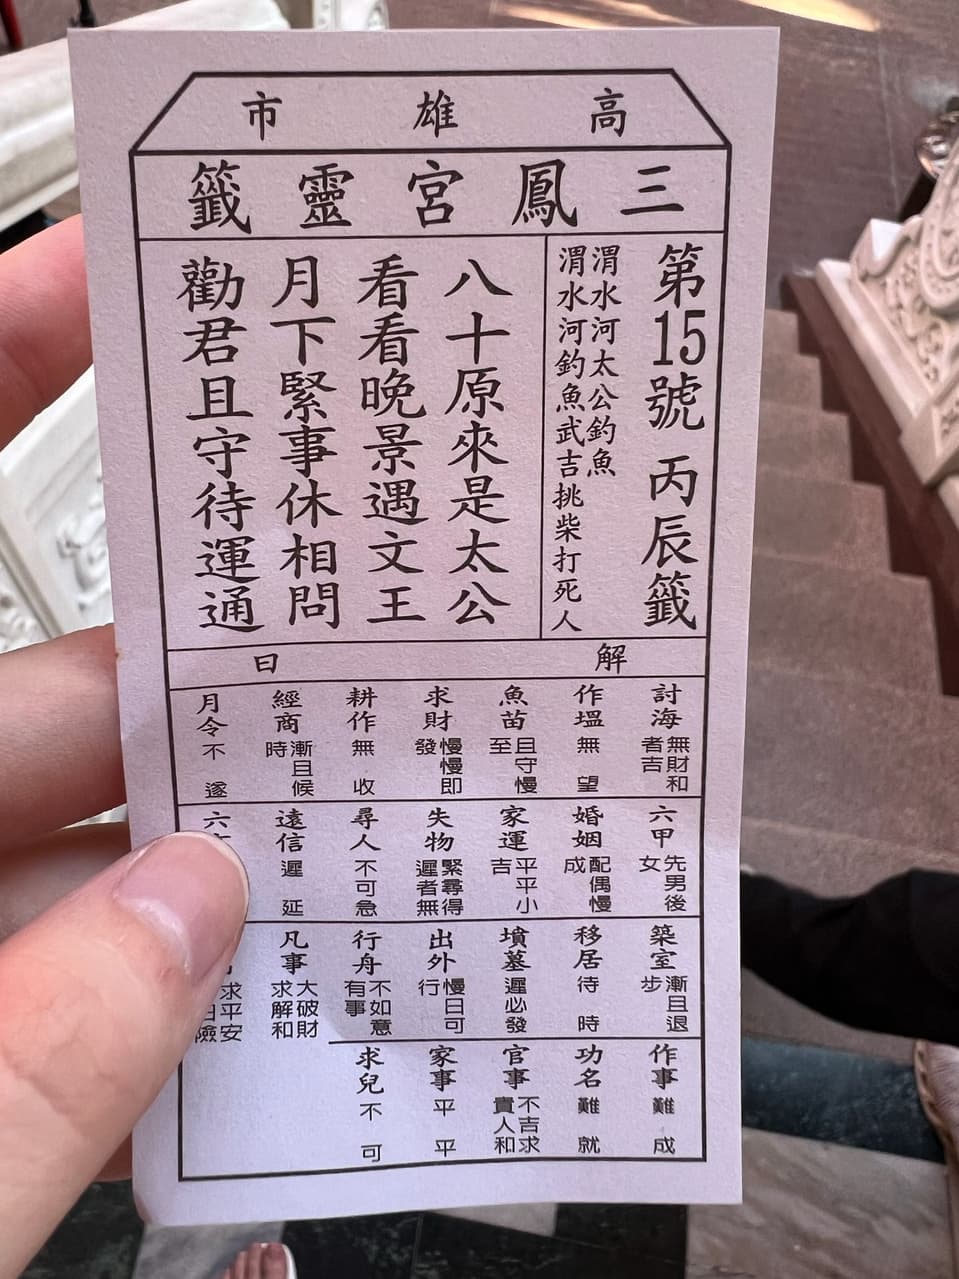 高雄市
三鳳宮靈籤
第15號 丙辰籤
渭水河太公釣魚
渭水河釣魚武吉挑柴打死人
八十原來是太公
看看晚景遇文王
月下緊事休相問
勸君且守待運通
解曰
討海 無財和者吉
作塭 無望
魚苗 且守慢至
求財 慢慢即發
耕作 無收
經商 漸且候時
月令 不遂
六甲 先男後女
婚姻 配偶慢成
家運 平平小吉
失物 緊尋得遲者無
尋人 不可急
遠信 遲延
六
築室 漸且退步
移居 待時
墳墓 遲必發
出外 慢日可行
行舟 不如意有事
凡事 大破財求解和
求平安日險
作事 難成
功名 難就
官事 不吉求貴人和
家事 平平
求兒 不可